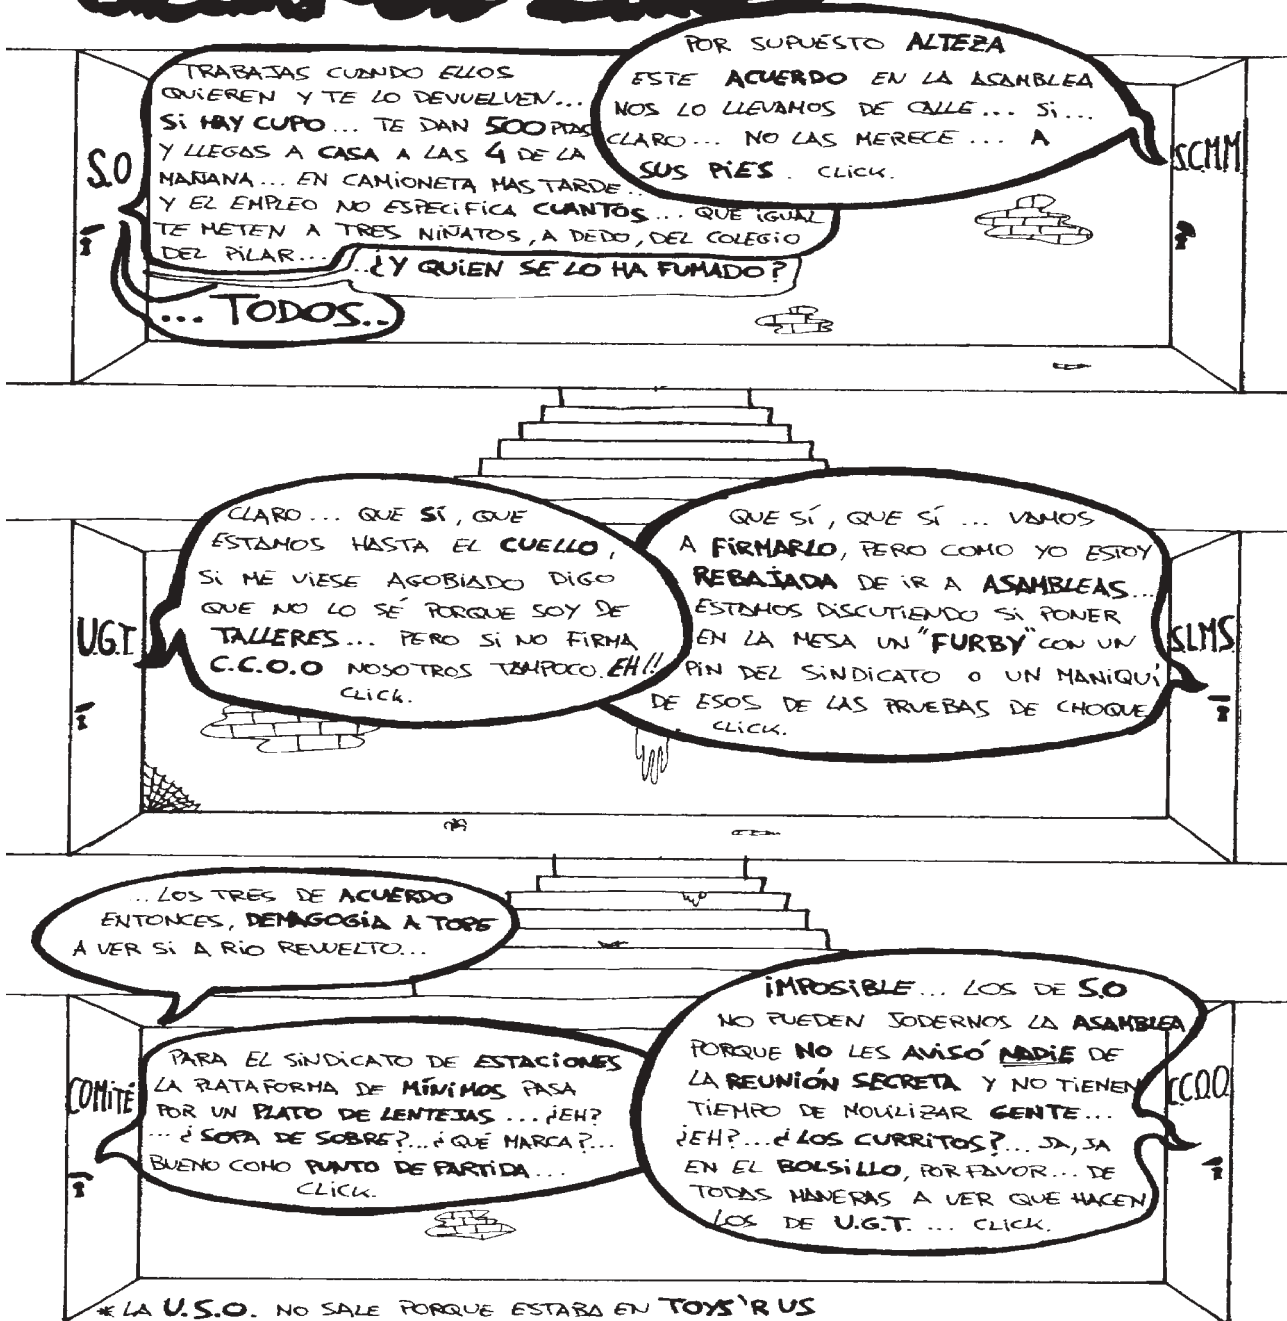 TRABAJAS CUANDO ELLOS
QUIEREN Y TE LO DEVUELVEN...
Si HAY CUPO... TE DAN 500 PTAS
Y LLEGAS A CASA A LAS 4 DE LA
MAÑANA... EN CAMIONETA MAS TARDE...
Y EL EMPLEO NO ESPECIFICA CUANTOS... QUE IGUAL
TE METEN A TRES NIÑATOS, A DEDO, DEL COLEGIO
DEL PILAR...
...¿Y QUIEN SE LO HA FUMADO?
... TODOS..
S.O
POR SUPUESTO ALTEZA
ESTE ACUERDO EN LA ASAMBLEA
NOS LO LLEVAMOS DE CALLE... Si...
CLARO... NO LAS MERECE... A
SUS PiES. CLICK.
S.C.M.M.
CLARO... QUE Sí, QUE
ESTAMOS HASTA EL CUELLO,
Si ME VIESE AGOBIADO DIGO
QUE NO LO SÉ PORQUE SOY DE
TALLERES... PERO Si NO FIRMA
C.C.O.O NOSOTROS TAMPOCO. EH!!
CLICK.
U.G.T.
QUE Sí, QUE Sí ... VAMOS
A FiRMARLO, PERO COMO YO ESTOY
REBAJADA DE iR A ASAMBLEAS...
ESTAMOS DiSCUTiENDO Si PONER
EN LA MESA UN "FURBY" CON UN
PiN DEL SiNDICATO O UN MANiQUí
DE ESOS DE LAS PRUEBAS DE CHOQUE
CLICK.
S.I.M.S.
...LOS TRES DE ACUERDO
ENTONCES, DEMAGOGiA A TOPE
A VER Si A RiO REVUELTO...
PARA EL SiNDICATO DE ESTACiONES
LA PLATAFORMA DE MÍNIMOS PASA
POR UN PLATO DE LENTEJAS ....¿EH?
...¿SOPA DE SOBRE?...¿QUÉ MARCA?...
BUENO COMO PUNTO DE PARTIDA...
CLICK.
COMiTÉ
iMPOSiBLE... LOS DE S.O
NO PUEDEN JODERNOS LA ASAMBLEA
PORQUE NO LES AVISÓ NADIE DE
LA REUNIÓN SECRETA Y NO TIENEN
TIEMPO DE MOVILIZAR GENTE...
¿EH?...¿LOS CURRITOS?... JA, JA
EN EL BOLSiLLO, POR FAVOR... DE
TODAS MANERAS A VER QUE HACEN
LOS DE U.G.T. ... CLICK.
C.C.O.O.
* LA U.S.O. NO SALE PORQUE ESTABA EN TOYS'R US